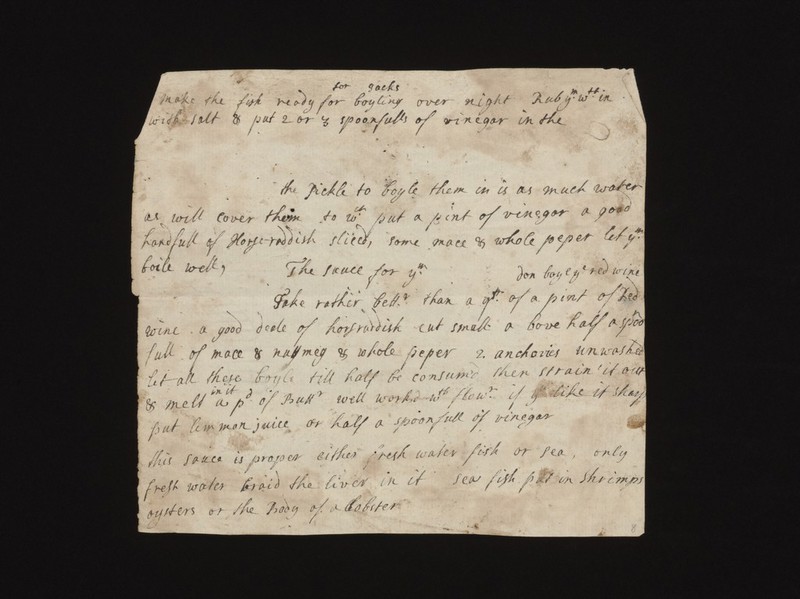 for Jacks
make the fish ready for boyling over night Rub ym wth in
with salt & put 2 or 3 spoonfulls of vinegar in the
the Pickle to boyle them in is as much water
as will cover them to wch put a pint of vinegar a good
handfull of Horse-raddish sliced, some mace & whole peper let ym
boile well,
The sauce for ym
don boyl ye red wine
Take rather bettr than a qtr of a pint of Red
wine a good deale of horsraddish cut small a bove half a spoo
full of mace & nutmeg & whole peper 2 anchovies unwashed
let all these boyle till half be consumd then strain it out
in it
& melt a pd of Buttr well workd wth flowr if yu like it sharp
put lemmon juice or half a spoonfull of vinegar
this sauce is proper either fresh water fish or sea, only
fresh water braid the liver in it sea fish put in shrimps
oysters or the Body of a Lobster
8